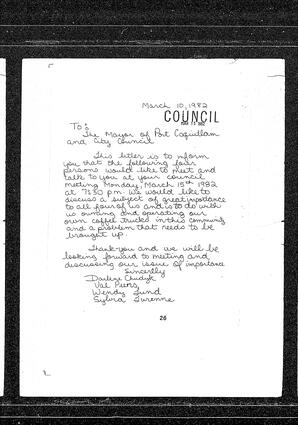 March 10, 1982
COUNCIL
To:
The Mayor of Port Coquitlam
and City Council
This letter is to inform
you that the following four
persons would like to meet and
talk to you at your council
meeting Monday, March 15th 1982
at 7:30 p.m. We would like to
discuss a subject of great importance
to all four of us and is to do with
us owning and operating our
own coffee trucks in this community
and a problem that needs to be
brought up.
Thank-you and we will be
looking forward to meeting and
discussing our issue of importance
Sincerely
Darlene
Val Piers,
Wendy Lund
Sylvia Turenne
26